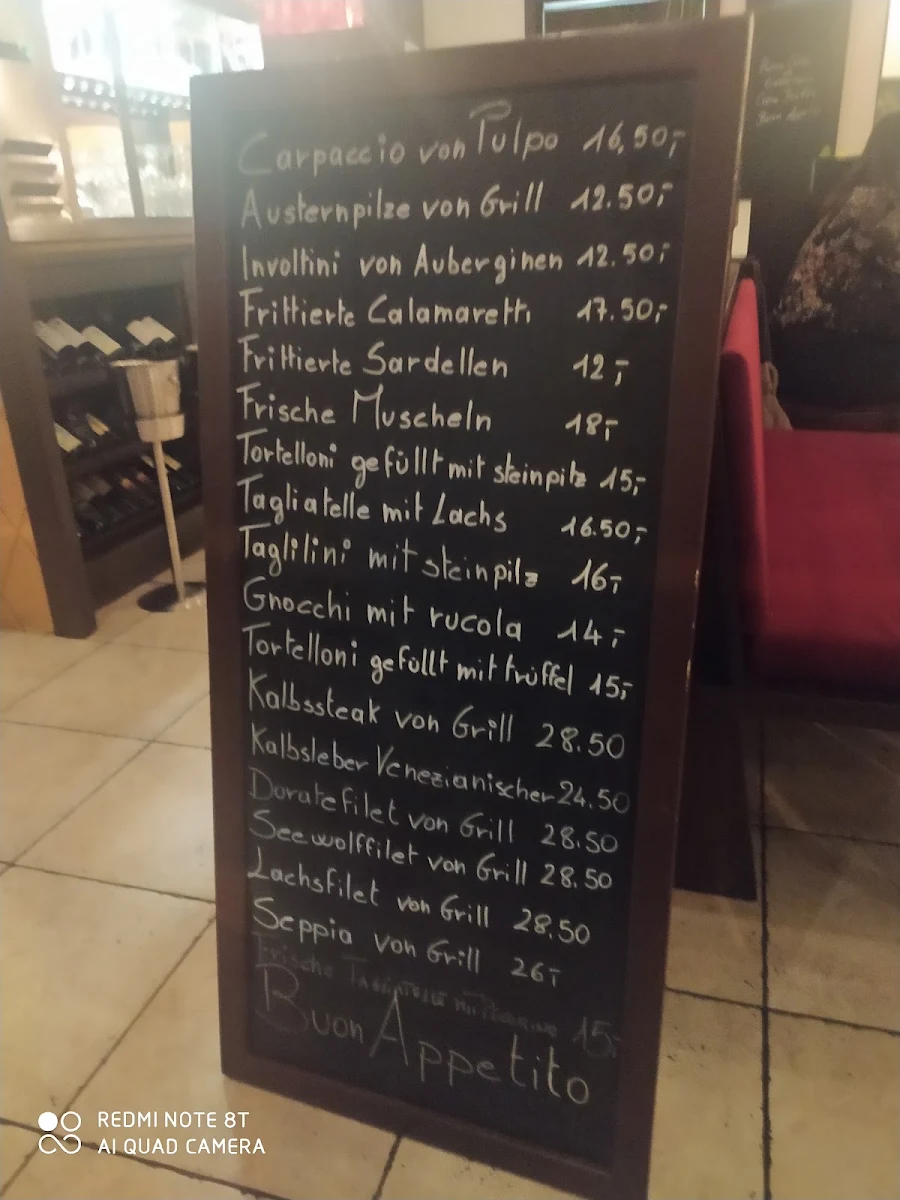 Carpaccio von Pulpo 16,50,-
Austernpilze von Grill 12.50,-
Involtini von Auberginen 12.50,-
Frittierte Calamaretti 17.50,-
Frittierte Sardellen 12,-
Frische Muscheln 18,-
Tortelloni gefüllt mit steinpilz 15,-
Tagliatelle mit Lachs 16.50,-
Taglilini mit steinpilz 16,-
Gnocchi mit rucola 14,-
Tortelloni gefüllt mit trüffel 15,-
Kalbssteak von Grill 28.50
Kalbsleber Venezianischer 24.50
Doratefilet von Grill 28.50
Seewolffilet von Grill 28.50
Lachsfilet von Grill 28.50
Seppia von Grill 26,-
Frische Tagliatelle mit 15,-
Buon Appetito
REDMI NOTE 8T
AI QUAD CAMERA